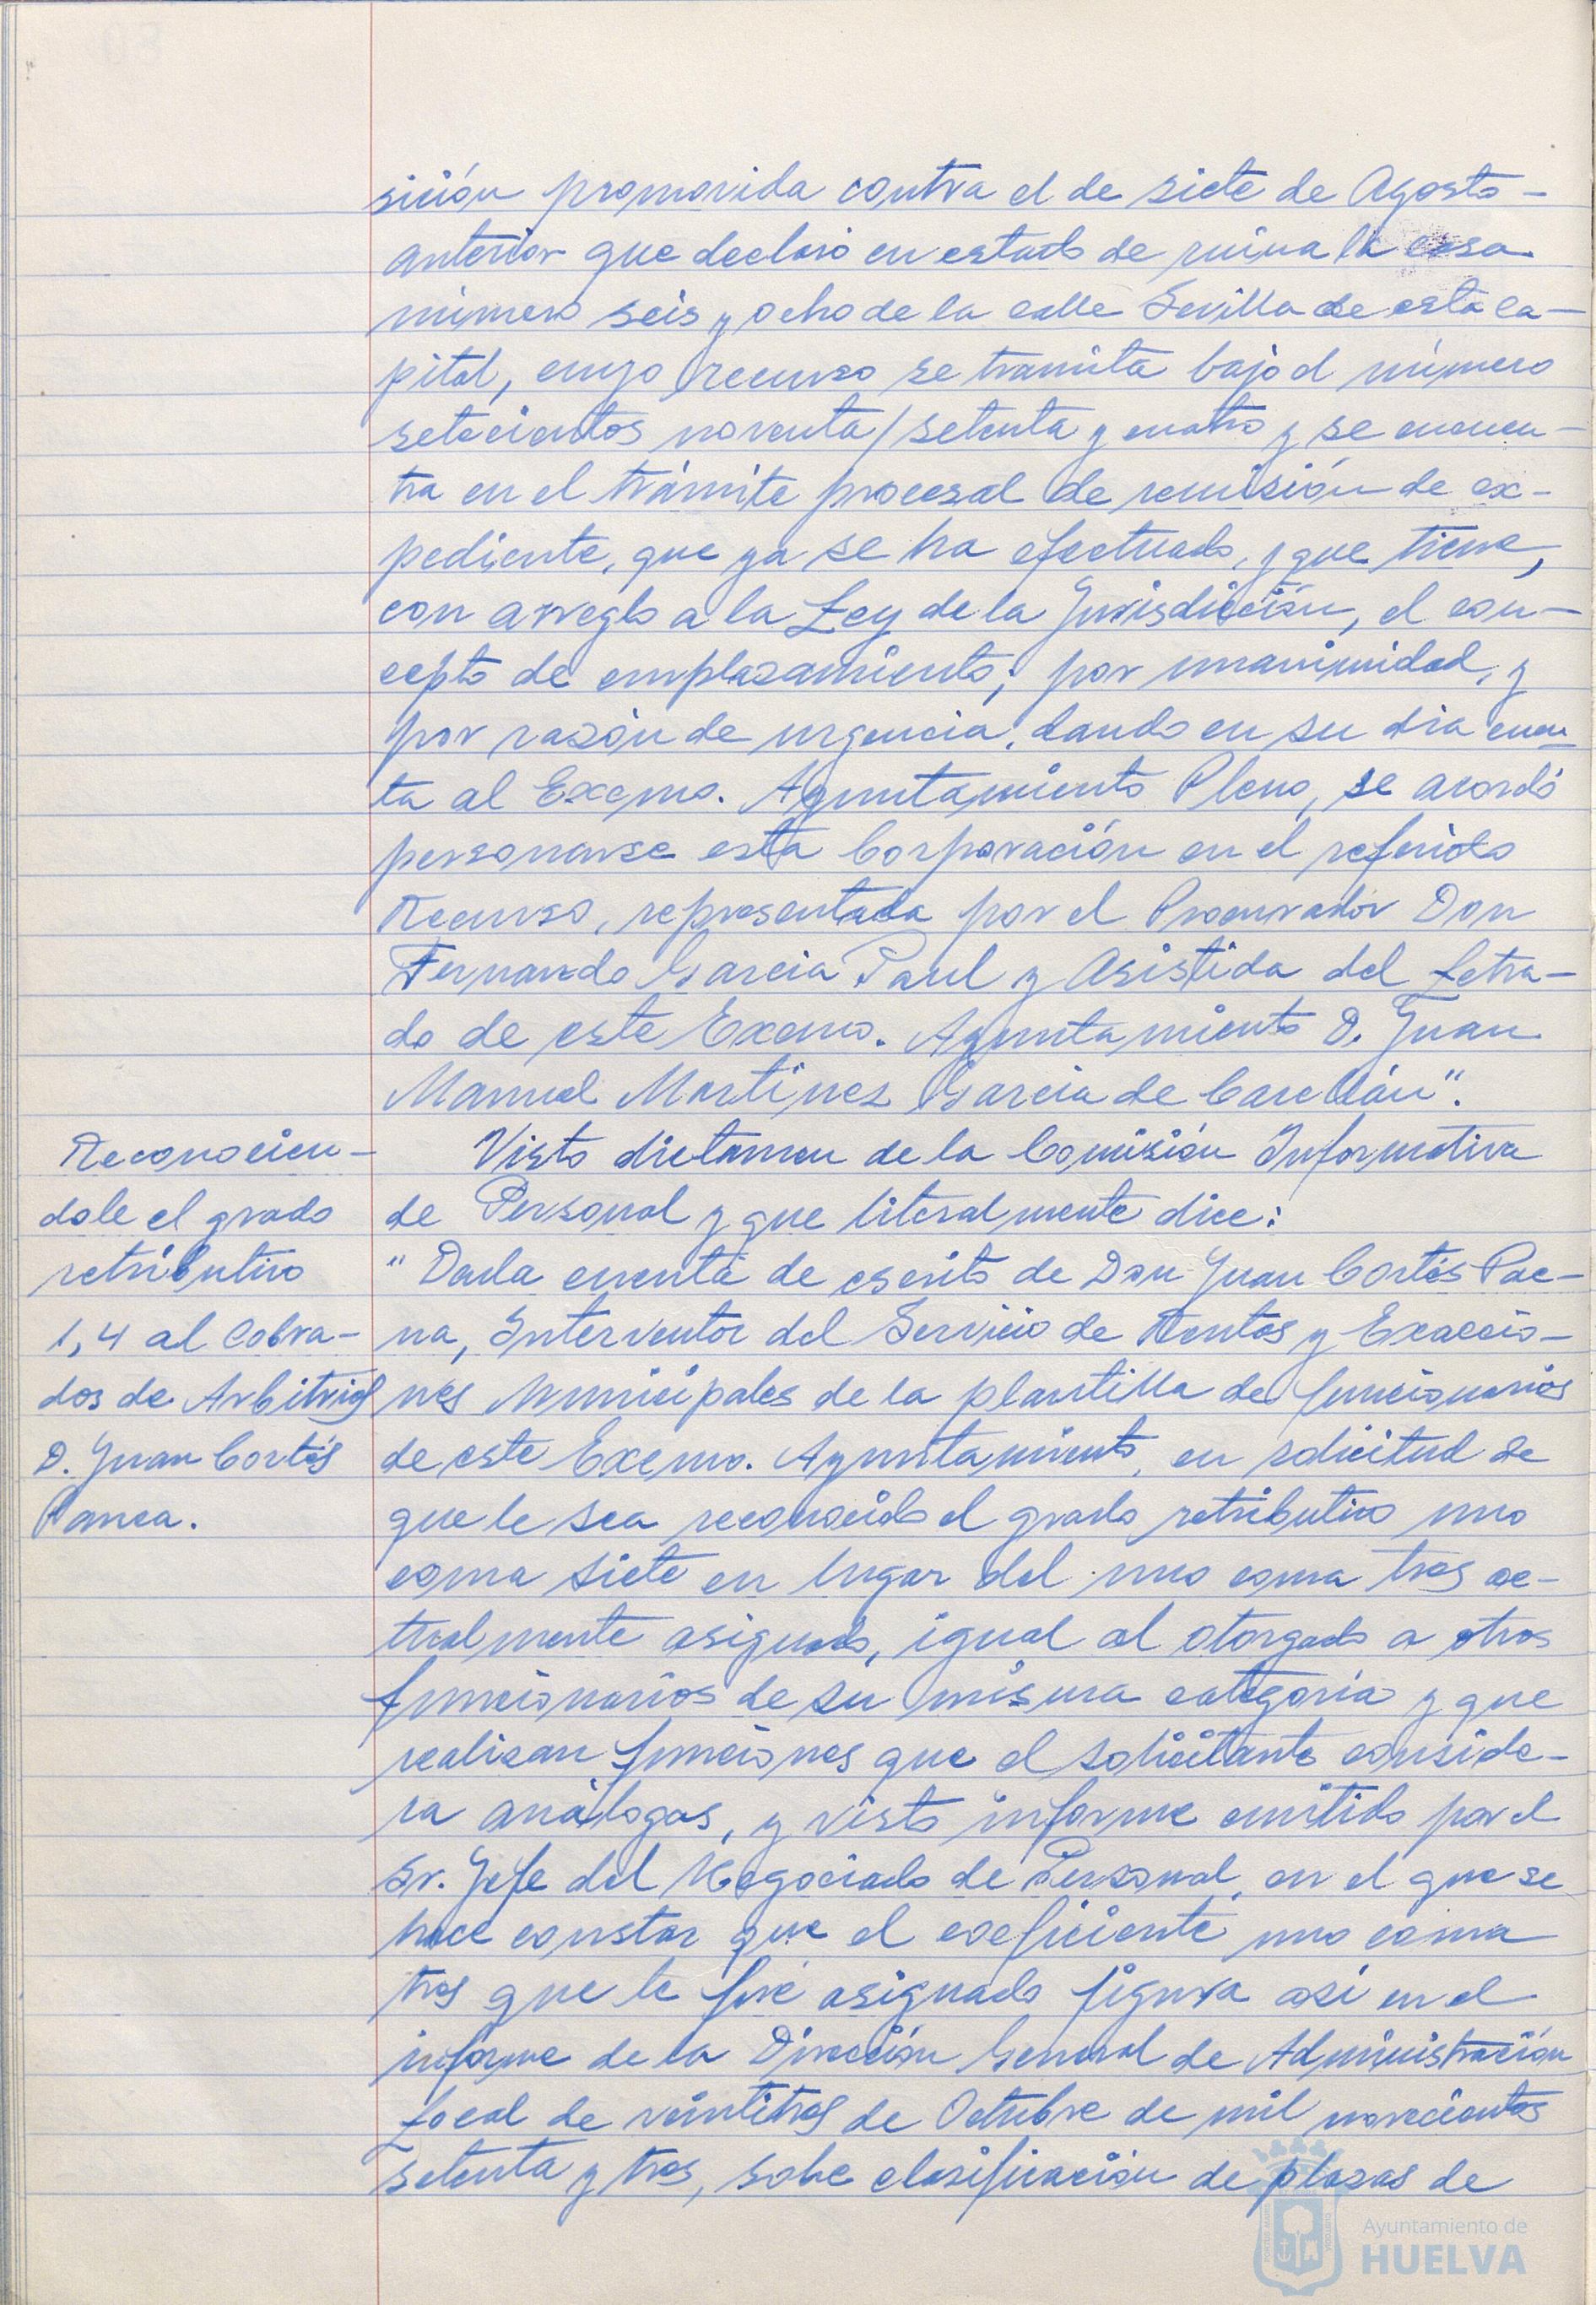 sición promovida contra el de siete de Agosto -
anterior que declaró en estado de ruina la casa
número seis y ocho de la calle Sevilla de esta ca-
pital, cuyo recurso se tramita bajo el número
setecientos noventa/setenta y cuatro y se encuen-
tra en el trámite procesal de remisión de ex-
pediente, que ya se ha efectuado, y que tiene,
con arreglo a la Ley de la Jurisdicción, el con-
cepto de emplazamiento; por unanimidad, y
por razón de urgencia, dando en su dia cuen-
ta al Excmo. Ayuntamiento Pleno, se acordó
personarse esta Corporación en el referido
Recurso, representada por el Procurador Don
Fernando Garcia Paul y Asistida del Letra-
do de este Excmo. Ayuntamiento D. Juan
Manuel Martinez Garcia de Carellán".
Reconocien-
dole el grado
retributivo
1,4 al Cobra-
dos de Arbitrios
D. Juan Cortés
Panea.
Visto dictamen de la Comisión Informativa
de Personal y que literalmente dice:
"Dada cuenta de escrito de Don Juan Cortés Pae-
na, Interventor del Servicio de Rentas y Exaccio-
nes Municipales de la plantilla de funcionarios
de este Excmo. Ayuntamiento, en solicitud de
que le sea reconocido el grado retributivo uno
coma siete en lugar del uno coma tres ac-
tualmente asignado, igual al otorgado a otros
funcionarios de su misma categoria y que
realizan funciones que el solicitante conside-
ra análogas, y visto informe emitido por el
Sr. Jefe del Negociado de Personal, en el que se
hace constar que el coeficiente uno coma
tres que le fué asignado figura asi en el
informe de la Dirección General de Administración
Local de veintitres de Octubre de mil novecientos
setenta y tres, sobre clasificación de plazas de
Ayuntamiento de
HUELVA